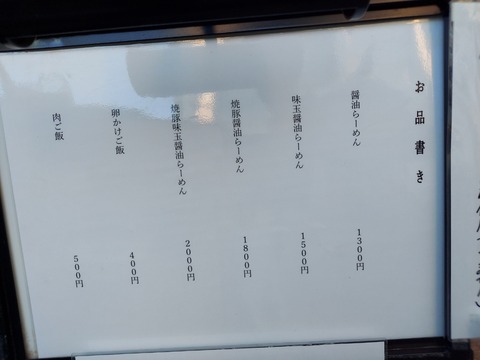 お品書き
醤油らーめん 1300円
味玉醤油らーめん 1500円
焼豚醤油らーめん 1800円
焼豚味玉醤油らーめん 2000円
卵かけご飯 400円
肉ご飯 500円